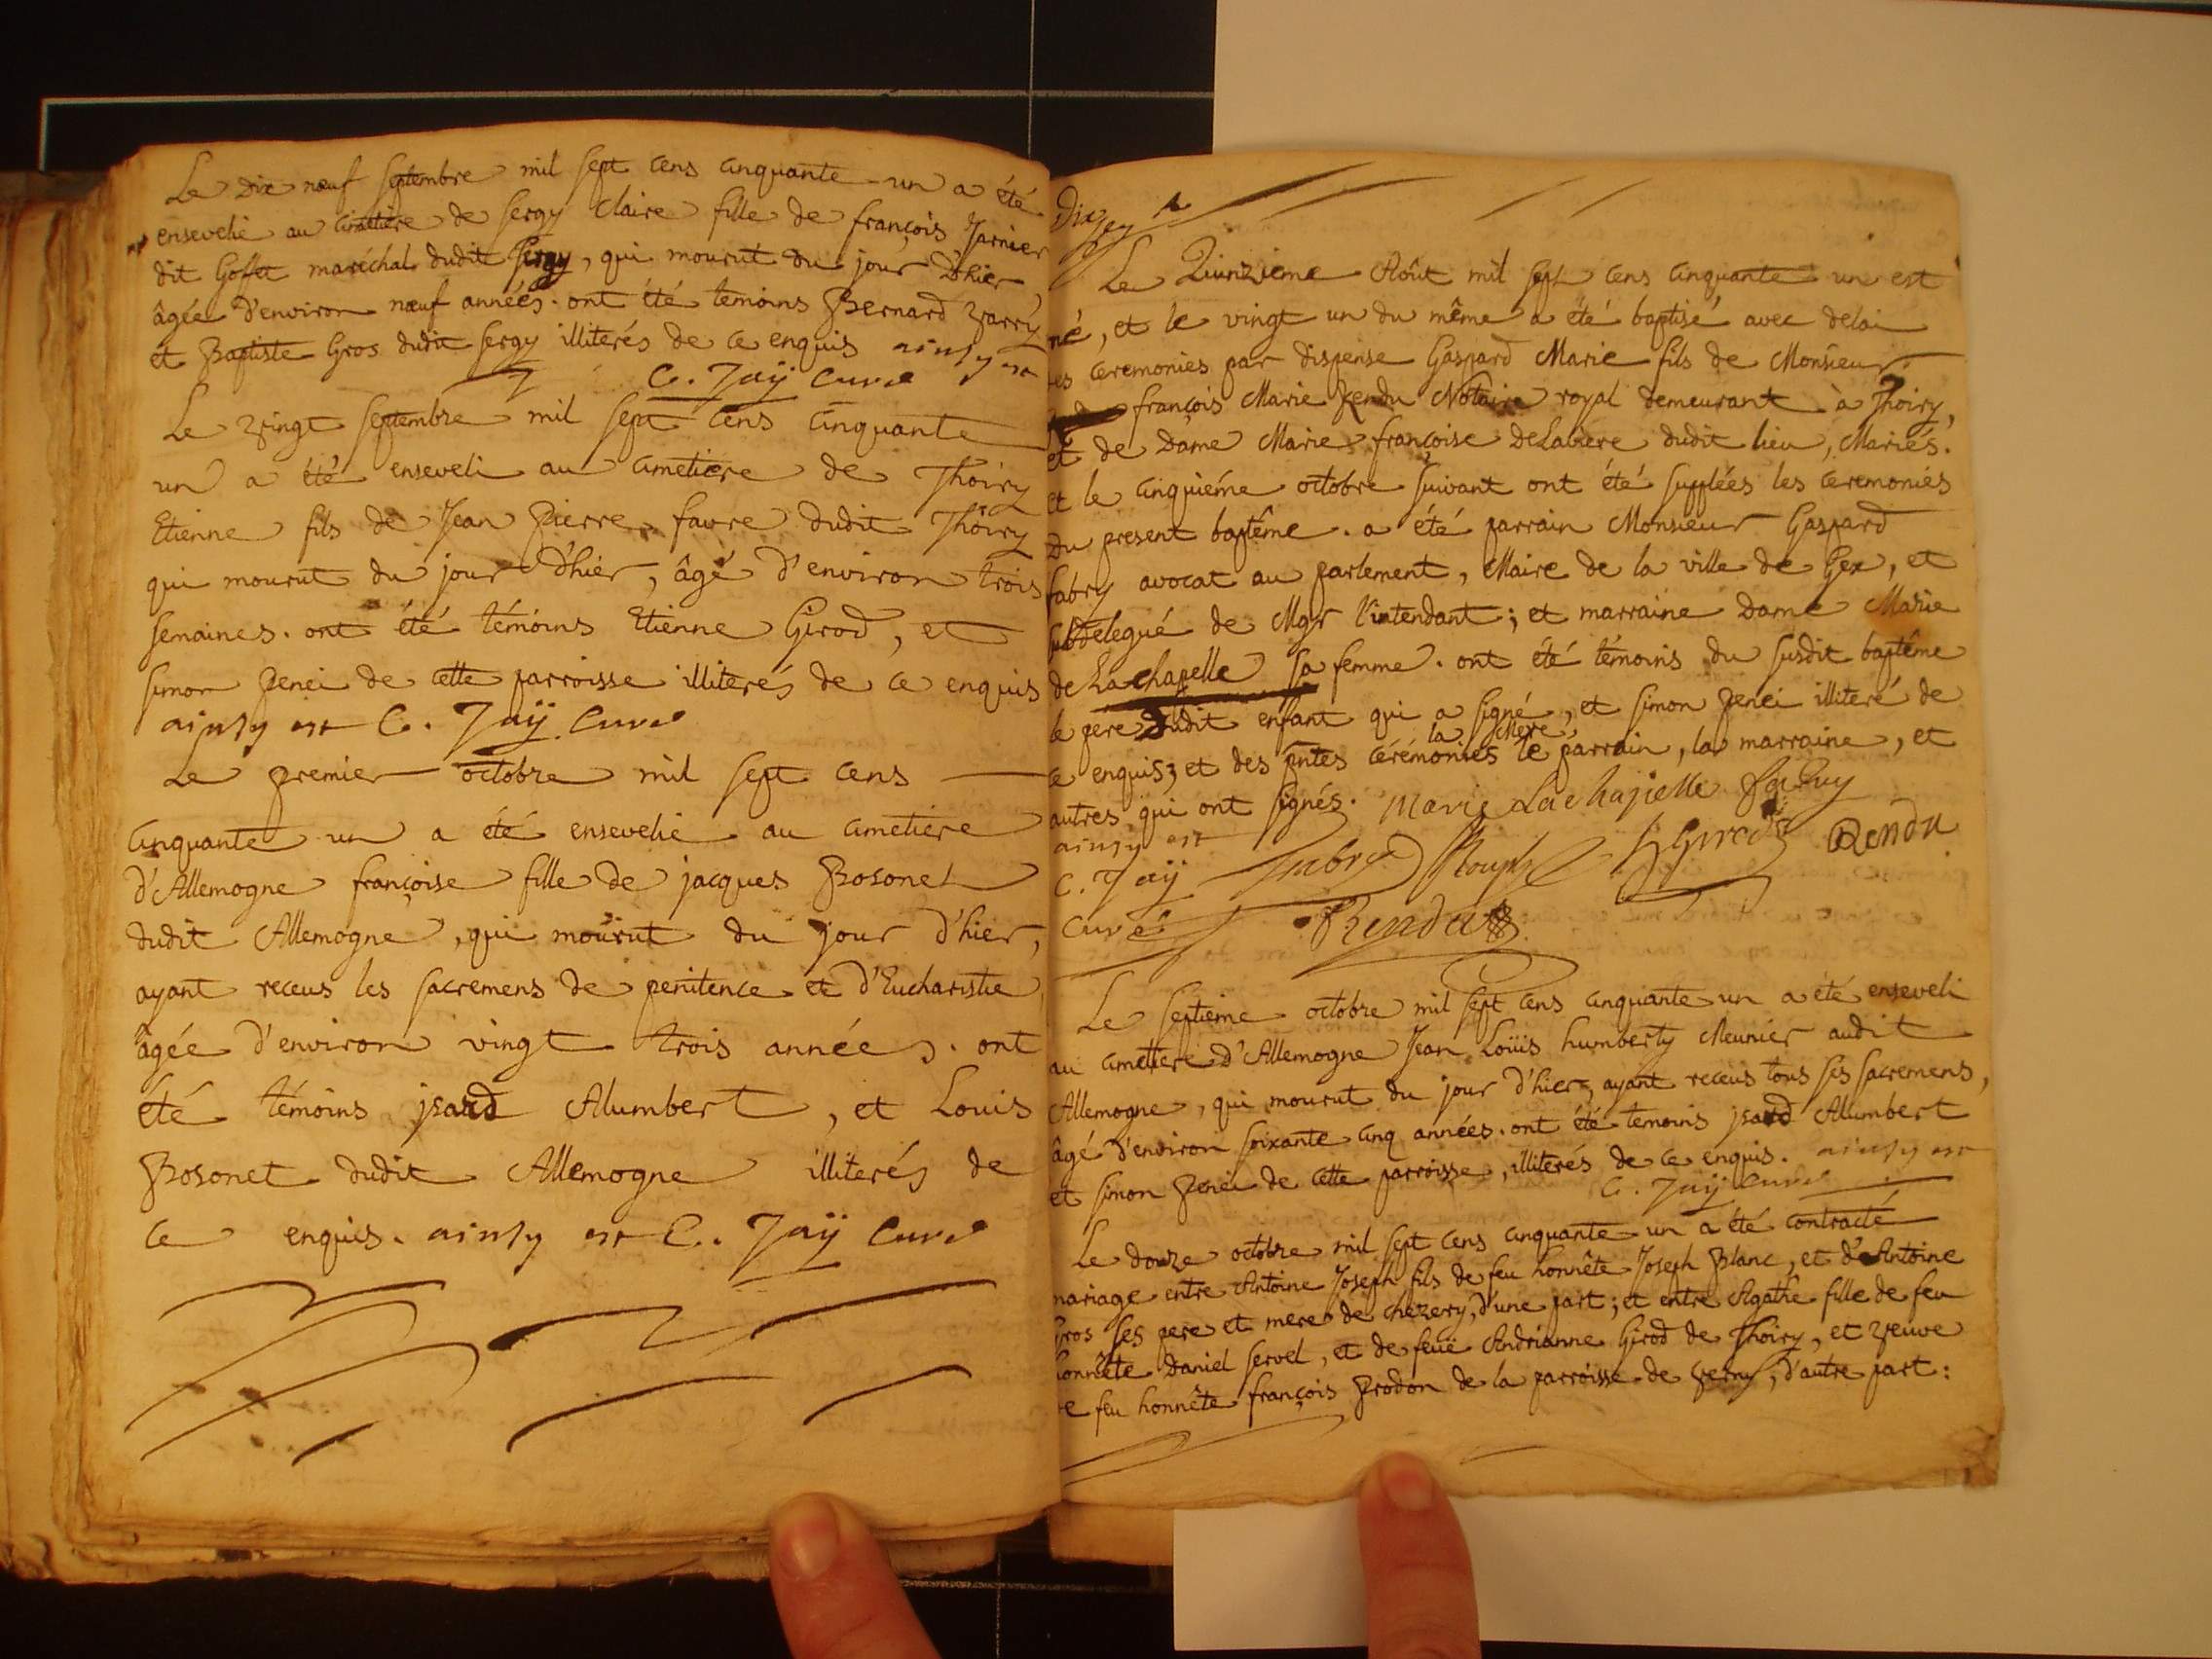 Le dix nœuf septembre mil sept cens cinquante un a été
ensevelie au cimetière de sergy claire fille de françois Jarnier
dit Goffet maréchal dudit sergy, qui mourut du jour d'hier,
âgée d'environ nœuf années. ont été temoins Bernard
et Baptiste Gros dudit sergy illiterés de ce enquis ainsy est
C. Jaÿ Curé
Le vingt septembre mil sept cens cinquante
un a été enseveli au cimetiere de Thoiry
Etienne fils de Jean Pierre favre dudit Thoiry
qui mourut du jour d'hier, âgé d'environ trois
semaines. ont été témoins Etienne Girod, et
simon penei de cette parroisse illiterés de ce enquis
ainsy est C. Jaÿ Curé
Le premier octobre mil sept cens
cinquante un a été ensevelie au cimetiere
d'Allemogne françoise fille de jacques Bosonet
dudit Allemogne, qui mourut du jour d'hier,
ayant receus les sacremens de penitence et d'Eucharistie
âgée d'environ vingt trois années. ont
été témoins jsard Alumbert, et Louis
Bosonet dudit Allemogne illiterés de
ce enquis. ainsy est C. Jaÿ Curé
Dix
Le Quinzieme Août mil sept cens cinquante un est
né, et le vingt un du même a été baptisé avec delai
des ceremonies par dispense Gaspard Marie fils de Monsieur
françois Marie Rendu Notaire royal demeurant à Thoiry,
et de Dame Marie françoise DeLabiere dudit lieu, Mariés.
et le cinquiéme octobre suivant ont été supplées les ceremonies
du present baptême. a été parrain Monsieur Gaspard
fabry avocat au parlement, Maire de la ville de Gex, et
subdelegué de Mgr l'intendant; et marraine Dame Marie
de Lachapelle sa femme. ont été témoins du susdit baptême
le pere dudit enfant qui a signé, et simon penei illiteré de
la Mere,
ce enquis; et des pntes cérémonies le parrain, la marraine, et
autres qui ont signés. Marie Lachapelle fabry
ainsy est
C. Jaÿ Fabry Girod Rendu
Curé Rendu
Le septieme octobre mil sept cens cinquante un a été enseveli
au cimetiere d'Allemogne Jean Loüis humberty Meunier audit
Allemogne, qui mourut du jour d'hier, ayant receus tous ses sacremens,
âgé d'environ soixante cinq années. ont été temoins jsard Alumbert
et simon penei de cette parroisse, illiterés de ce enquis. ainsy est
C. Jaÿ Curé
Le douze octobre mil sept cens cinquante un a été contracté
mariage entre Antoine Joseph fils de feu honnête Joseph Blanc, et d'Antoine
Gros ses pere et mere de chezery, d'une part; et entre Agathe fille de feu
honnête Daniel servel, et de feuë Andrianne Girod de Thoiry, et veuve
de feu honnête françois prodon de la parroisse de perny, d'autre part: